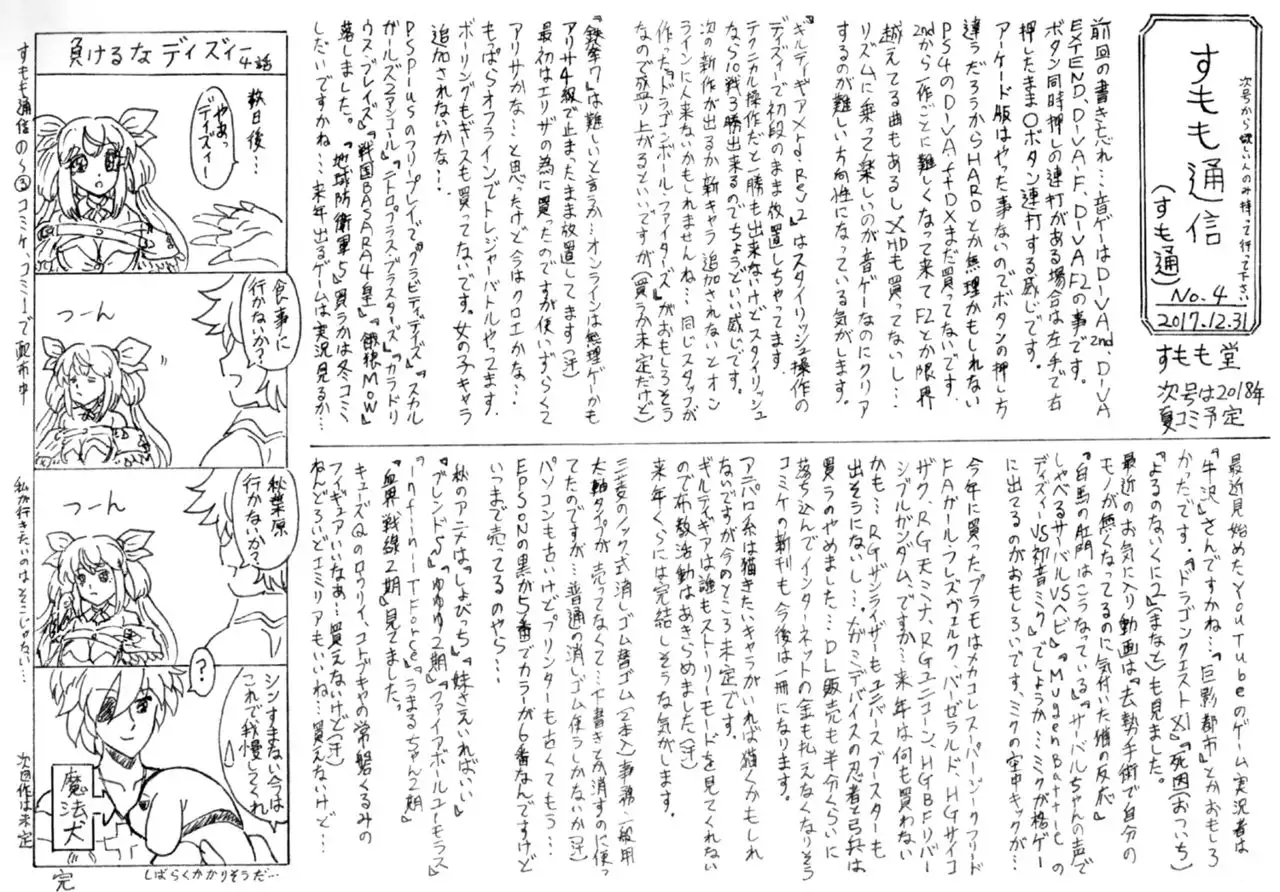 次号から欲しい人のみ持って行って下さい
すもも通信
(すも通)
No.4
2017.12.31
すもも堂
次号は2018年
夏コミ予定
前回の書き忘れ…音ゲーはDIVA2nd、DIVA
EXTEND、DIVA F、DIVA F2の事です。
ボタン同時押しの連打がある場合は左手で右
押したまま○ボタン連打する感じです。
アーケード版はやった事ないのでボタンの押し方
違うだろうからHARDとか無理かもしれない
PS4のDIVA f+tDXまだ買ってないです。
2ndから一作ごとに難しくなって来てF2とか限界
越えてる曲もあるしXHDも買ってないし…
リズムに乗って楽しいのが音ゲーなのにクリア
するのが難しい方向性になっている気がします。
『ギルティギアXrd Rev2』はスタイリッシュ操作の
ディズィーで初段のまま放置しちゃってます。
テクニカル操作だと一勝も出来ないけどスタイリッシュ
なら10戦3勝出来るのでちょうどいい感じです。
次の新作が出るか新キャラ追加されないとオン
ラインに人来ないかもしれませんね…同じスタッフが
作った『ドラゴンボールファイターズ』がおもしろそう
なので盛り上がるといいですが(買うか未定だけど)
『鉄拳7』は難しいと言うか…オンラインは無理ゲーかも
アリサ4級で止まったまま放置してます(汗)
最初はエリザの為に買ったのですが使いずらくて
アリサかな…と思ったけど今はクロエかな…
もっぱらオフラインでトレジャーバトルやってます。
ボーリングもギースも買ってないです。女の子キャラ
追加されないかな…
PSplusのフリープレイで『グラビティデイズ』『スカル
ガールズ2ndアンコール』『ニトロプラスブラスターズ』『カラドリ
ウスブレイズ』『戦国BASARA4皇』『餓狼MOW』
落しました。『地球防衛軍5』買うかは冬コミへ
したいですかね…来年出るゲームは実況見るか…
最近見始めたYouTubeのゲーム実況者は
『牛沢』さんですかね…『巨影都市』とかおもしろ
かったです。『ドラゴンクエストXI』『死因(おついち)
『よるのないくに2(まなと)も見ました。
最近のお気に入り動画は『去勢手術で自分の
モノが無くなってるのに気付いた猫の反応』
『白馬の肛門はこうなっている』『サーバルちゃんの声で
しゃべるサーバルVSヘビ』『MugenBattleの
ディズィーVS初音ミク』でしょうか…ミクが格ゲー
に出てるのがおもしろいです、ミクの空中キックが…
今年に買ったプラモはカカコレスーパージークフリード
FAガールフレズヴェルク、バーゼラルド、HGサイコ
ザク、RG天ミナ、RGユニコーン、HGBFリバー
シブルガンダム、ですか…来年は何も買わない
かも…RGザンライザーもユニバースブースターも
出そうにないし…。ガミデバイスの忍者と弓兵は
買うのやめました…DL販売も半分くらいに
落ち込んでインターネットの金も払えなくなりそう
コミケの新刊も今後は一冊になります。
アニパロ系は描きたいキャラがいれば描くかもしれ
ないですが今のところ未定です。
ギルティギアは誰もストーリーモードを見てくれない
ので布教活動はあきらめました(汗)
来年くらいには完結しそうな気がします。
三菱のノック式消しゴム替ゴム(2本入)事務、一般用
太軸タイプが売ってなくて…下書きとか消すのに使っ
てたのですが…普通の消しゴム使うしかないか(汗)
パソコンも古いけどプリンターも古くてもう…
EPSONの黒が5番でカラーが6番なんですけど
いつまで売ってるのやら…
秋のアニメは『しょびっち』『妹さえいればいい』
『ブレンドS』『ゆゆゆ2期』『ファイアボールユーモラス』
『Infini-T Force』『うまるちゃん2期』
『血界戦線2期』見てました。
キューズQのロウリィ、コトブキヤの常磐くるみの
フィギュアいいなぁ…買えないけど(汗)
ねんどろいどエミリアもいいね…買えないけど…
負けるなディズィー4話
数日後…
やぁっ
ディズィー
食事に
行かないか?
つーん
秋葉原
行かないか?
つーん
?
シンすまない今は
これで我慢してくれ
魔法犬
しばらくかかりそうだ…
完
すもも通信の①～③コミケ、コミ1で配布中
私が行きたいのはそこじゃない…
次回作は未定